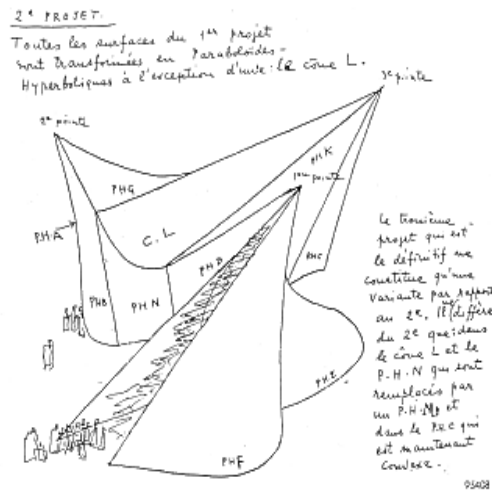 2e PROJET.
Toutes les surfaces du 1er projet
sont transformées en Paraboloïdes-
Hyperboliques à l'exception d'une: le cône L.
3e pointe
2e pointe
PHK
1ère pointe
PHG
PHA
C.L
PHD
PHC
PHB
PHN
PHE
PHF
Le troisième
projet qui est
le définitif ne
constitue qu'une
variante par rapport
au 2e. Il diffère
du 2e que dans
le cône L et le
P-H-N qui sont
remplacés par
un P.H. et
dans le qui
est maintenant
convexe.